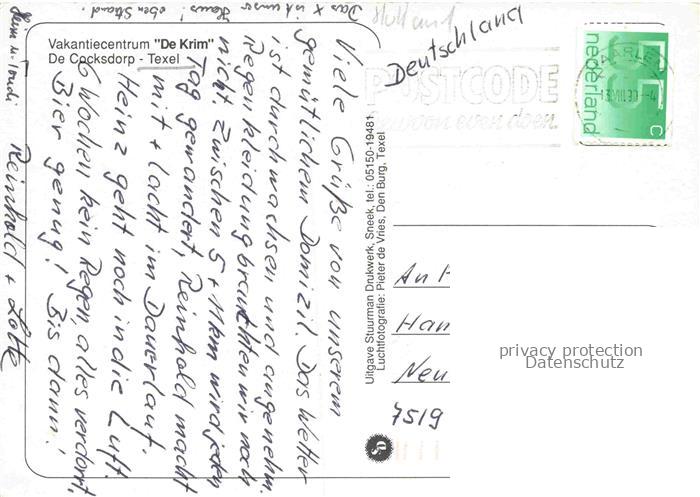 Vakantiecentrum "De Krim"
De Cocksdorp - Texel
Das X ist unser Haus! oben Strand.
Viele Grüße von unserem
gemütlichem Domizil. Das Wetter
ist durchwachsen und angenehm.
Regenkleidung brauchten wir noch
nicht. Zwischen 5 + 11 km wird jeden
Tag gewandert, Reinhold macht
mit + lacht im Dauerlauf.
Heinz geht noch in die Luft.
6 Wochen kein Regen, alles verdorrt,
Bier genug! Bis dann!
Reinhold + Lotte
Heinz u. Trudi
Uitgave Stuurman Drukwerk, Sneek, tel.: 05150-19481
Luchtfotografie: Pieter de Vries, Den Burg, Texel
Holland
Deutschland
POSTCODE
gewoon even doen
HAARLEM
nederland
C
An
Han
Neu
7519
privacy protection
Datenschutz